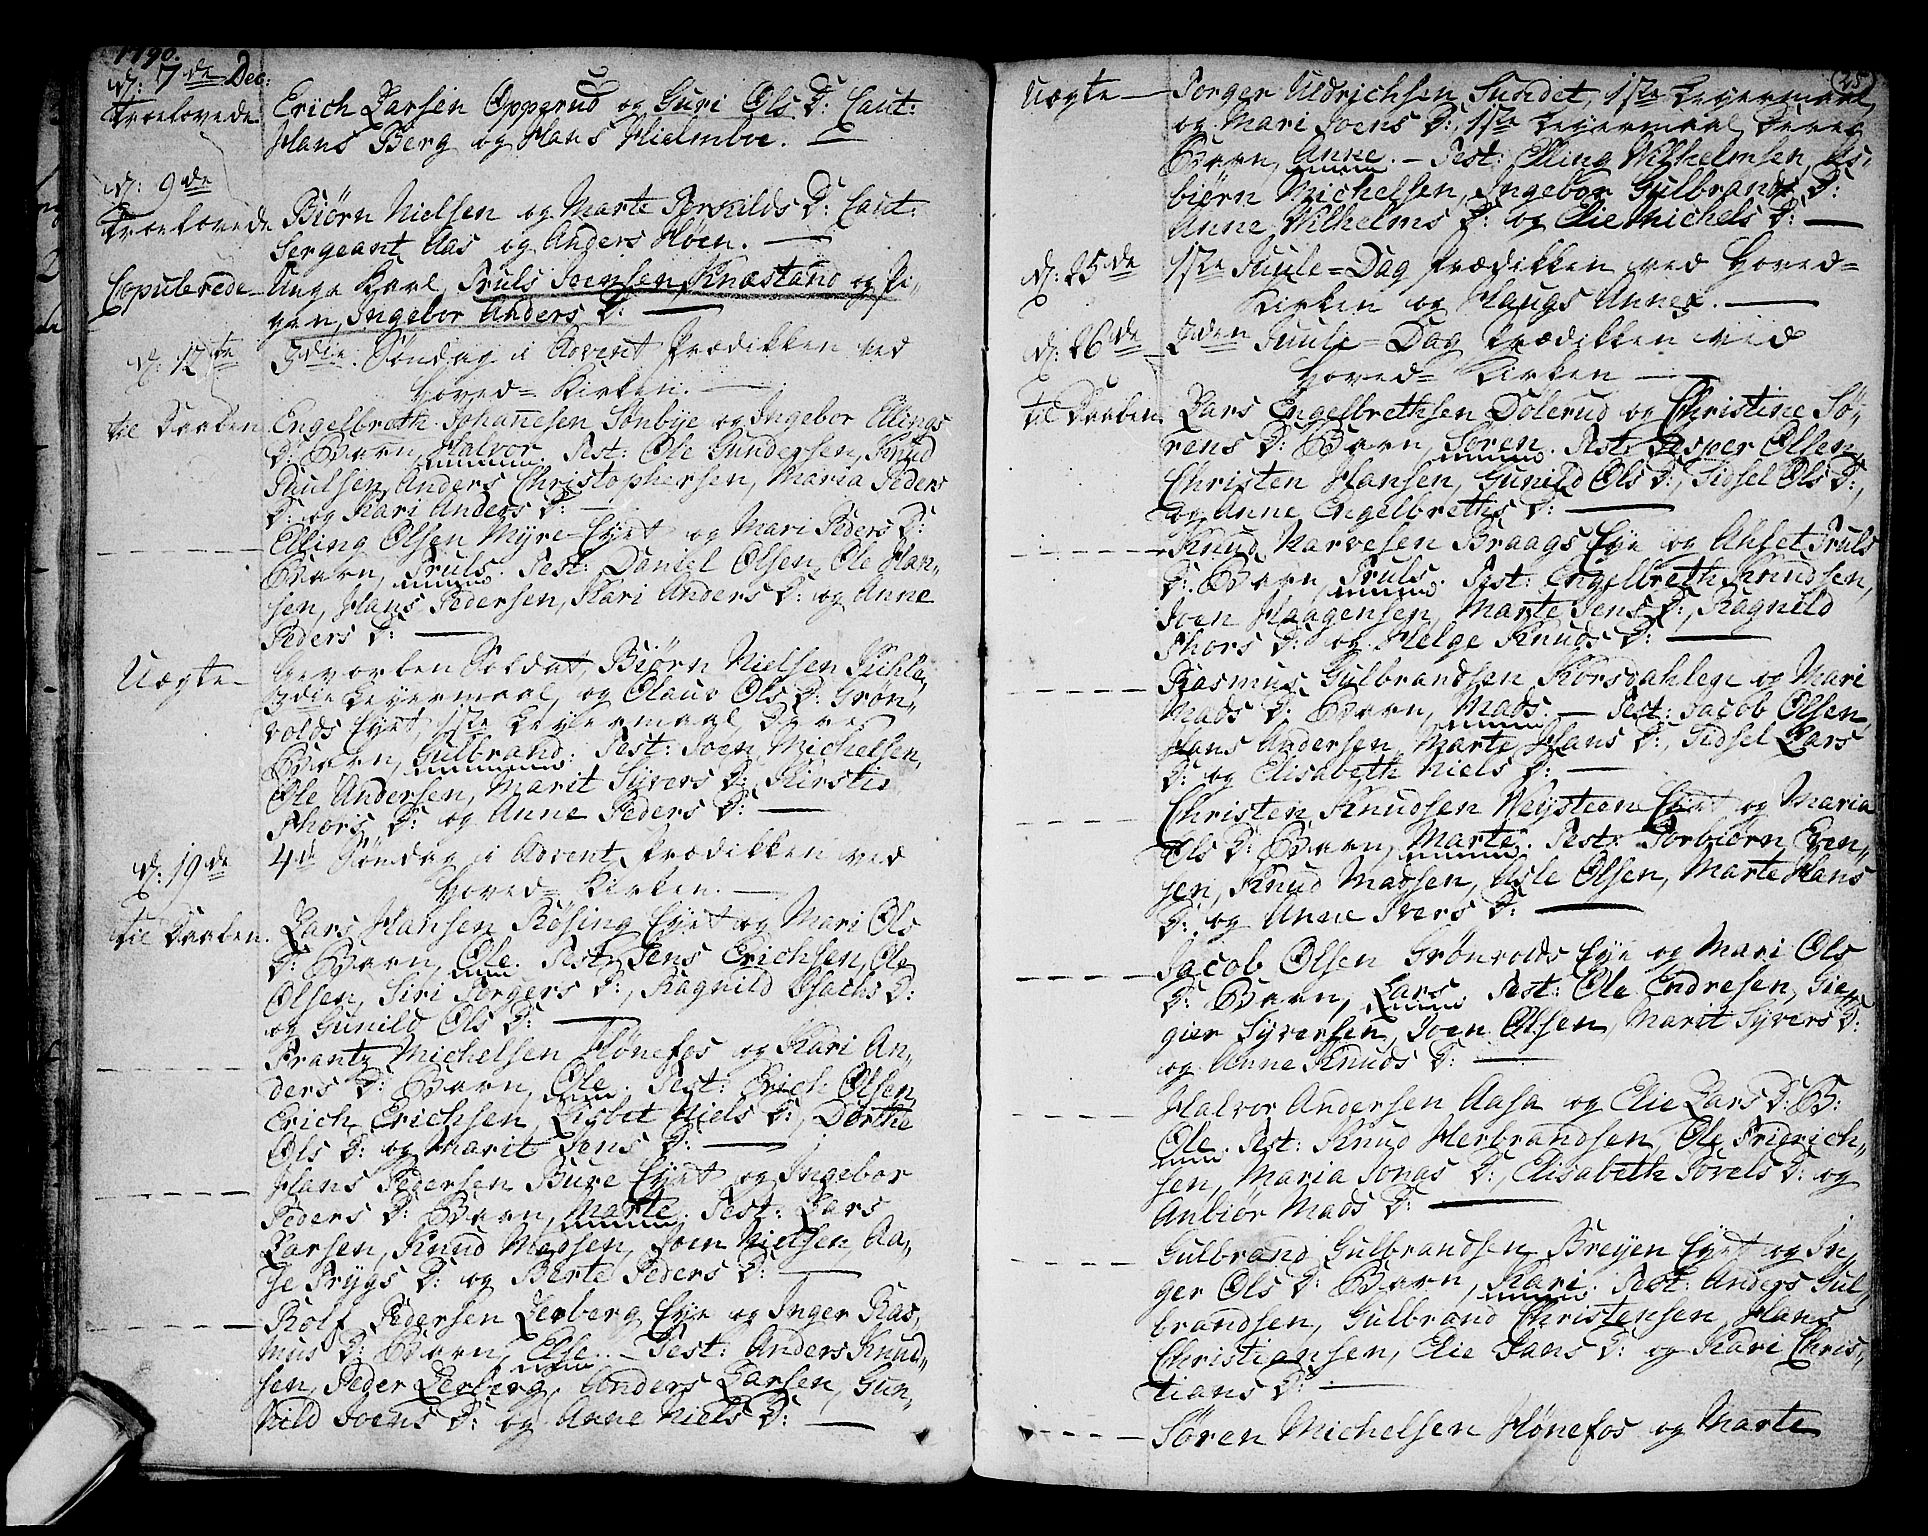 1790.
d: 7de Dec:
Troelovede Erich Larsen Opperud og Guri Ols D: Caut:
Hans Berg og Hans Hielmboe. —
d: 9de
Troelovede Biørn Nielsen og Marte Torvilds D: Caut:
Sergeant Aas og Anders Høen. —
Copulerede Unge Karl, Truls Joensen Knæstand og Pi-
gen, Ingebor Anders D: —
d: 12te 3die Søndag i Advent Prædikken ved
Hoved= Kirken. —
til Daaben Engelbreth Johannesen Sønbye og Ingebor Ellings
D: Barn, Halvor. Test: Ole Gundersen, Knud
Paulsen, Anders Christophersen, Maria Peders
D: og Kari Anders D: —
— — — — Elling Olsen Myre Eyet og Mari Peders D:
Barn, Truls. Test: Daniel Olsen, Ole Han-
sen, Hans Pedersen, Kari Anders D: og Anne
Peders D: —
Uægte — Gevorben Soldat, Biørn Nielsen
3die Leyermaal, og Olaug Ols D: Grøn-
volds Eyet 1ste Leyermaal, Deres
Barn, Gulbrand. Test: Joen Michelsen,
Ole Andersen, Marit Syvers D: Kirsti
Thors D: og Anne Peders D: —
d: 19de 4de Søndag i Advent Prædikken ved
Hoved= Kirken. —
til Daaben. Lars Hansen Røsing Eyet og Mari Ols
D: Barn, Ole. Test: Jens Erichsen, Ole
Olsen, Siri Torgers D:, Ragnild Isachs D:
og Gunild Ols D: —
— — — — Frantz Michelsen Hønefos og Kari An-
ders D: Barn, Ole. Test: Erich Olsen,
Erich Erichsen, Lisbet Niels D:, Dorthe
Ols D: og Marit Jens D: —
— — — — Hans Pedersen Bure Eyet og Ingebor
Peders D: Barn, Marte. Test: Lars
Larsen, Knud Madsen, Joen Nielsen, Aa-
se Trygs D: og Berte Peders D: —
— — — — Rolf Pedersen Lerberg Eye og Inger Ras-
mus D: Barn, Else. — Test: Anders Knud-
sen, Peder Lerberg, Anders Larsen, Gun-
hild Joens D: og Anne Niels D: —
(25)
Uægte — Torger Uldrichsen Sundet, 1ste Leyermaal,
og Mari Joens D:, 1ste Leyermaal, Deres
Barn, Anne. — Test: Elling Wilhelmsen, As-
biørn Michelsen, Ingebor Gulbrands D:
Anne Wilhelms D: og Elie Michels D: —
d: 25de 1ste Juule=Dag Prædikken ved Hoved=
Kirken og Haugs Annex. —
d: 26de 2den Juule=Dag Prædikken ved
Hoved= Kirken —
til Daaben Lars Engelbrethsen Dolerud og Christine Sø-
rens D: Barn, Søren. Test: Jesper Olsen,
Christen Hansen, Gunild Ols D:, Sidsel Ols D:,
og Anne Engelbreths D: —
— — — — Knud Narvesen Braags Eye og Ahset Truls
D: Barn, Truls. Test: Engelbreth Knudsen,
Joen Haagensen, Marte Jens D:, Ragnild
Thors D: og Helge Knuds D: —
— — — — Rasmus Gulbrandsen Korsdahlen og Mari
Mads D: Barn, Mads. — Test: Jacob Olsen,
Hans Andersen, Marte Hans D:, Sidsel Lars
D: og Elisabeth Niels D: —
— — — — Christen Knudsen Veysteen Eyet og Maria
Ols D: Barn, Marte. Test: Torbiørn Even-
sen, Knud Madsen, Asle Olsen, Marte Hans
D: og Anne Ivers D: —
— — — — Jacob Olsen Grønvolds Eye og Mari Ols
D: Barn, Lars. Test: Ole Endresen, Giet-
gier Syversen, Joen Olsen, Marit Syvers D:
og Anne Knuds D: —
— — — — Halvor Andersen Aasa og Elie Lars D: B:
Ole. Test: Knud Herbrandsen, Ole Friderich-
sen, Maria Jonas D:, Elisabeth Tovels D: og
Anbiør Mads D: —
— — — — Gulbrand Gulbrandsen Breyen Eyet og In-
ger Ols D: Barn, Kari. Test: Anders Gul-
brandsen, Gulbrand Christensen, Hans
Christiansen, Elie Jans D: og Kari Chris-
tians D: —
— — — — Søren Michelsen Hønefos og Marte